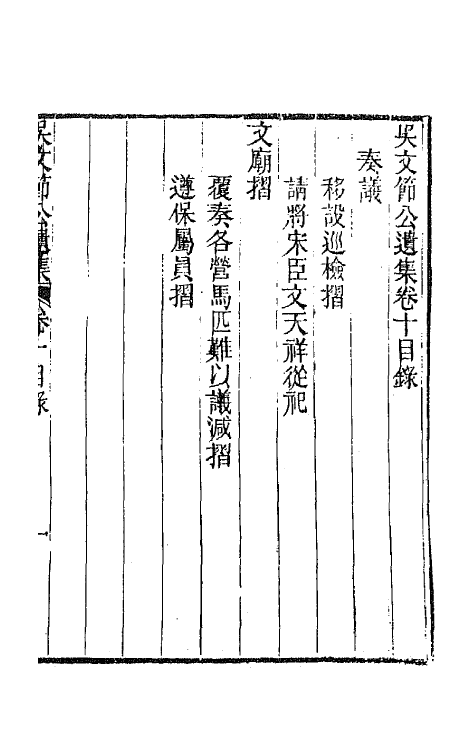 吳文節公遺集卷十目錄
奏議
移設巡檢摺
請將宋臣文天祥從祀
文廟摺
覆奏各營馬匹難以議減摺
遵保屬員摺
吳文節公遺集 卷十目錄 一